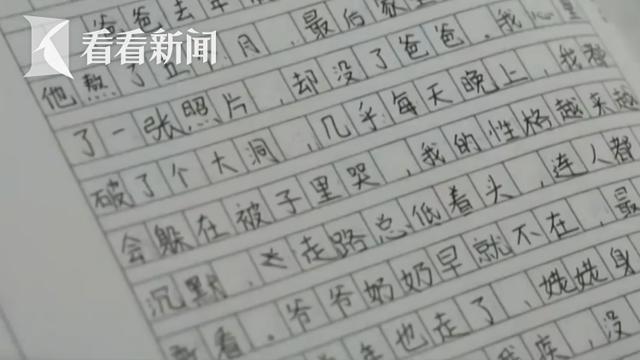 看看新闻
爸爸去年
他熬了五个月，最后家里
了一张照片，却没了爸爸，我心里
破了个大洞，几乎每天晚上，我都
会躲在被子里哭，我的性格越来越
沉默，走路总低着头，连人都
看。爷爷奶奶早就不在，最
年也走了，姥姥身
没